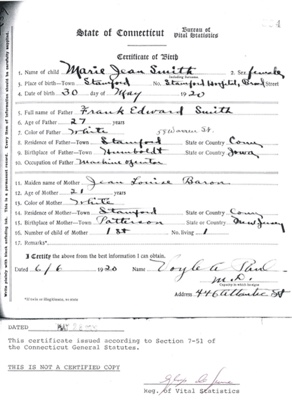 State of Connecticut
Bureau of
Vital Statistics
Certificate of Birth
1. Name of child Marie Jean Smith 2. Sex female
3. Place of birth—Town Stamford No. Stamford Hospital, Broad Street
4. Date of birth 30 day of May 1920
5. Full name of Father Frank Edward Smith
6. Age of Father 27 years
7. Color of Father White
8. Residence of Father—Town Stamford State or Country Conn
9. Birthplace of Father—Town Humboldt State or Country Iowa
10. Occupation of Father Machine operator
11. Maiden name of Mother Jean Louise Baron
12. Age of Mother 21 years
13. Color of Mother White
14. Residence of Mother—Town Stamford State or Country Conn
15. Birthplace of Mother—Town Patterson State or Country New Jersey
16. Number of child of Mother 1st No. living 1
17. Remarks*
I Certify the above from the best information I can obtain.
Dated 6/6 1920 Name
M.D.
Address 446 Atlantic St
DATED
This certificate issued according to Section 7-51
of the Connecticut General Statutes.
THIS IS NOT A CERTIFIED COPY
Reg. of Vital Statistics